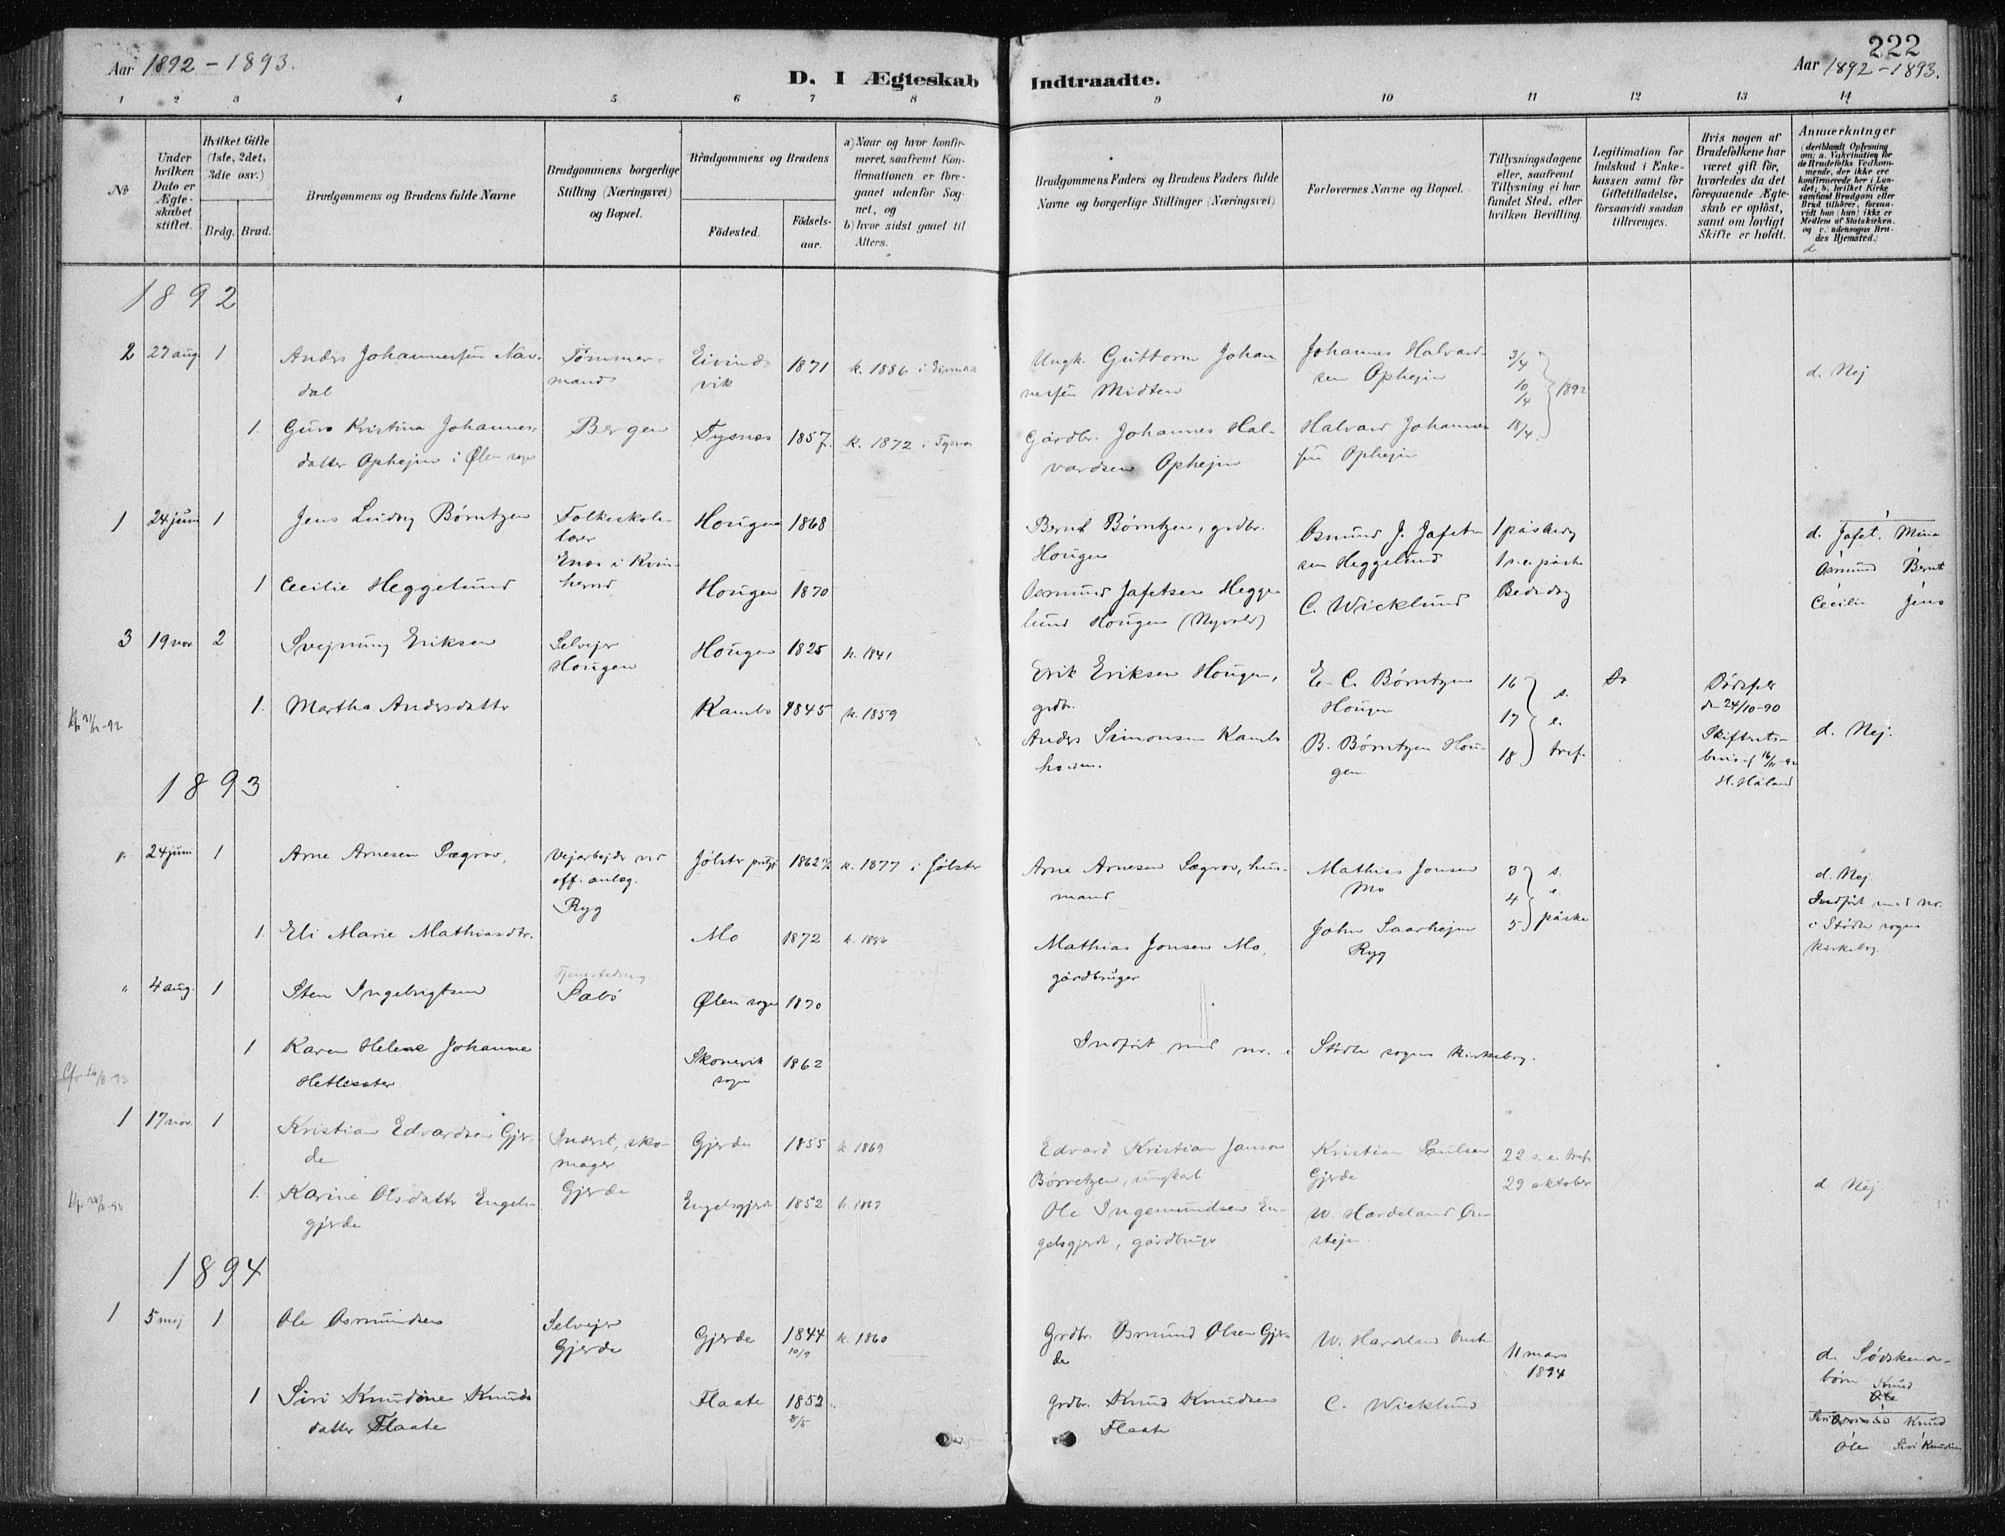 222
Aar 1892 - 1893.
D. I Ægteskab Indtraadte.
Aar 1892 - 1893.
1 2 3 4 5 6 7 8 9 10 11 12 13 14
No
Under hvilken Dato er Ægteskabet stiftet.
Hvilket Gifte (1ste, 2det, 3die osv.)
Brdg. Brud.
Brudgommens og Brudens fulde Navne
Brudgommens borgerlige Stilling (Næringsvei) og Bopæl.
Brudgommens og Brudens
Födested.
Födselsaar.
a) Naar og hvor konfirmeret, saafremt Konfirmationen er foregaaet udenfor Sognet, og
b) hvor sidst gaaet til Alters.
Brudgommens Faders og Brudens Faders fulde Navne og borgerlige Stillinger (Næringsvei)
Forlovernes Navne og Bopæl.
Tillysningsdagene eller, saafremt Tillysning ei har fundet Sted, efter hvilken Bevilling.
Legitimation for Indskud i Enkekassen samt for Giftetilladelse, forsaavidt saadan tiltrænges.
Hvis nogen af Brudefolkene har været gift för, hvorledes da det foregaaende Ægteskab er oplöst, samt om lovligt Skifte er holdt.
Anmærkninger
1892
2 27 aug 1 Anders Johannessen Nav-
dal
Tømmer-
mand
Eivinds-
vik
1871
k. 1886 i
Ungk. Guttorm Johan-
nessen Midten
Johannes Halvard-
sen Ophejm
3/4
10/4
18/4
1892
d. Nej
1. Guro Kristina Johannes-
datter Ophejm i Ølen sogn
Bergen
Tysnes
1857.
k. 1872 i Tysnes
Gårdbr. Johannes Hal-
vardsen Ophejm
Halvard Johannes-
sen Ophejm
1 24 juni 1 Jens Ludvig Børntzen
Folkeskole-
lærer
Enes i Kvin-
herred
Hougen 1868
Bernt Børntzen, grdbr.
Hougen
Osmund J. Jafet-
sen Heggelund
1 påskedg
1 s. e. påske
Bededag
d. Jafet. Mina
Osmund Bernt
Cecilie Jens
1 Cecilie Heggelund
Hougen 1870
Osmund Jafetsen Hegge-
lund Hougen (Nyvold)
C. Wicklund
3 19 nov 2 Svejnung Eriksen
Selvejer
Hougen
Hougen 1825 k. 1841
Erik Eriksen Hougen,
grdbr.
E. C. Børntzen
Hougen
16
17
18
s.
e.
tref.
Dødsfel
d. 24/10-90
Skifteats-
bevis af
H. Håland
d. Nej.
1. Martha Andersdatter
Kambo 1845 k. 1859
Anders Simonsen Kambo
B. Børntzen Hou-
gen
1893
24 juni 1 Arne Arnesen Sægrov,
Vejarbejder ved
off. anlæg.
Ryg
Jølster prstgj 1862 k. 1877 i Jølster
Arne Arnesen Sægrov, hus-
mand
Mathias Jonsen
Mo
3
4
5
s.
e.
påske
d. Nej
Indført med nr.
i Stødle sogns
kirkebog.
1. Eli Marie Mathiasdtr.
Mo 1872
Mathias Jonsen Mo,
gårdbruger
John Saarhejm
Ryg
" 4 aug. 1 Sten Ingebrigtsen
Sæbø
Ølen sogn 1870
1 Karen Helene Johanne
Skonevik
sogn
1862
Indført med nr. i Stødle sogns kirkebog.
1 17 nov. 1 Kristian Edvardsen Gjer-
de
sko-
mager
Gjerde
Gjerde 1855 k. 1869
Edvard Kristian Janson
Børretzen, ungkal
Kristian Paulsen
Gjerde
22 s. e. tref.
29 oktober
d. Nej
1. Karine Olsdatter Engels-
gjerde
Engelsgjerde 1852 k. 1867
Ole Ingemundsen En-
gelsgjerde, gårdbruger
W. Hardeland Øn-
stejn
1894
1 5 mej 1 Ole Osmundsen
Selvejer
Gjerde
Gjerde 1844
10/9
k. 1860
Grdbr. Osmund Olsen Gjer-
de
W. Hardeland
11 mars
1894
d. Sødskende-
børn Knud
Ole
Knud
Ole Siri Knudine
1 Siri Knudine Knuds-
datter Flaate
Flaate 1852
8/5
Grdbr. Knud Knudsen
Flaate
C. Wicklund